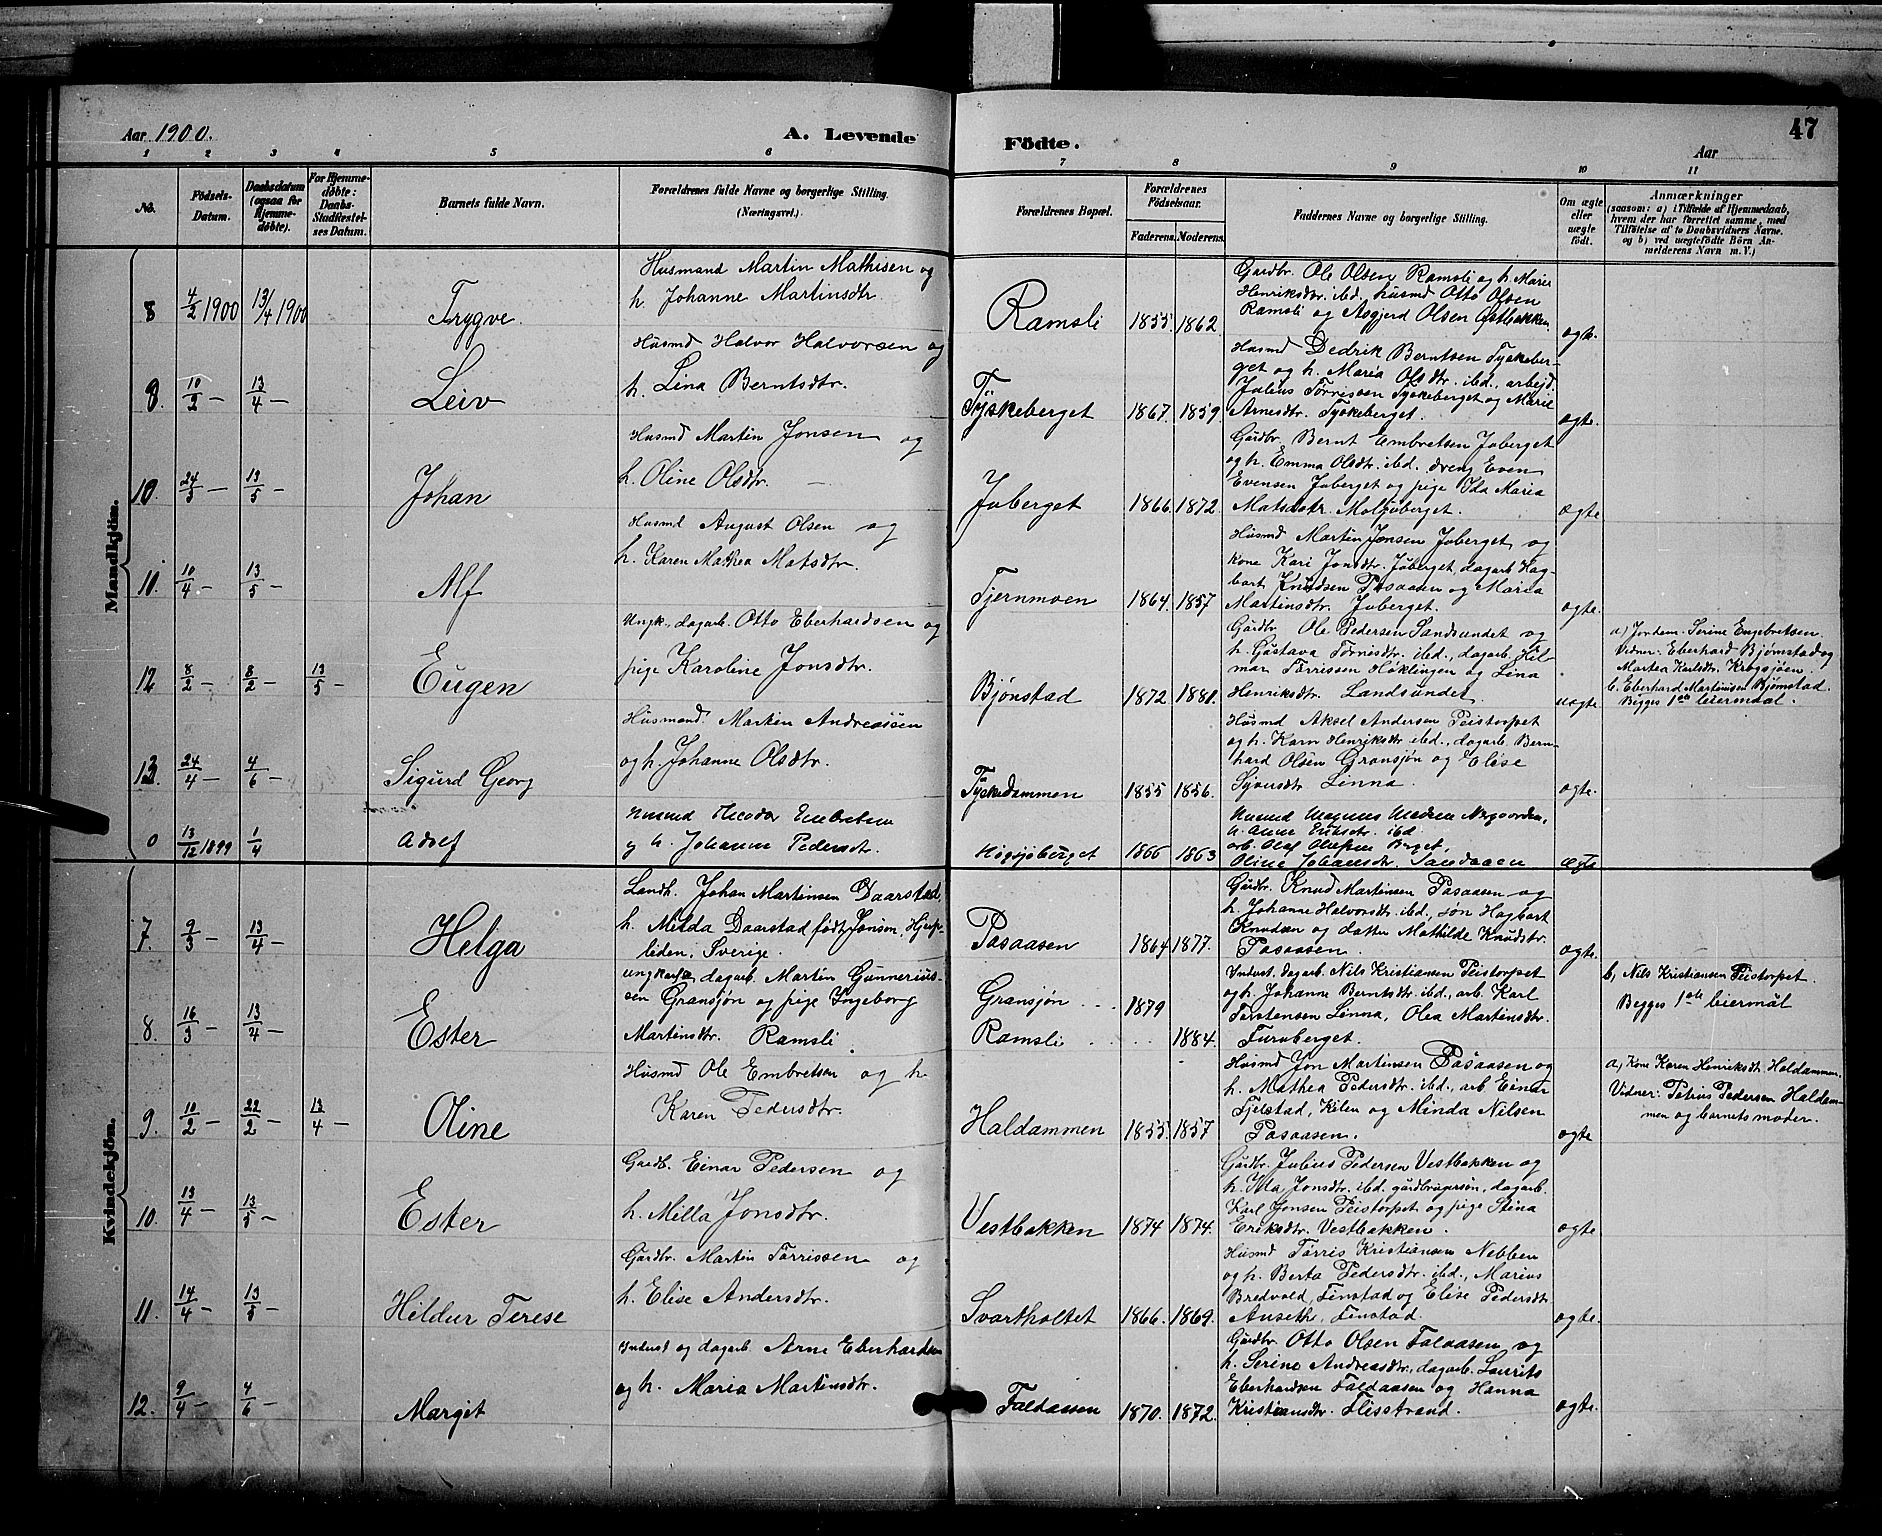 Aar 1900.
A. Levende
Födte.
Aar
47
1 2 3 4 5 6 7 8 9 10 11
No.
Födsels-Datum.
Daabsdatum (ogsaa for Hjemme-døbte).
For Hjemme-døbte: Daabs-Stadfæstel-ses Datum.
Barnets fulde Navn.
Forældrenes fulde Navne og borgerlige Stilling.
(Næringsvei.)
Forældrenes Bopæl.
Forældrenes Födselsaar.
Faderens. Moderens.
Faddernes Navne og borgerlige Stilling.
Om ægte eller uægte født.
Anmærkninger
(saasom: a) i Tilfælde af Hjemmedaab, hvem der har forrettet samme, med Tilføielse af to Daabsvidners Navne, og b) ved uægtefödte Börn An-melderens Navn m. V.)
Mandkjön.
8 4/2 1900 13/4 1900 Trygve.
Husmand Martin Mathisen og
h. Johanne Martinsdtr.
Ramsli 1855. 1862.
Gardbr. Ole Olsen Ramsli og h. Marie
Henriksdtr. ibd., husmd Otto Olsen
Ramsli og Asgjerd Olsen Østbakken
ægte.
9. 10/2 — 13/4 — Leiv
Husmd Halvor Halvorsen og
h. Lina Berntsdtr.
Tyskeberget 1867. 1859.
Husmd Dedrik Berntsen Tyskeber-
get og h. Maria Olsdtr. ibd., arbejd.
Julius Torrissen Tyskeberget og Marie
Arnesdtr. Tyskeberget.
ægte.
10. 24/3 — 13/5 — Johan
Husmd Martin Jonsen og
h. Oline Olsdtr. —
Juberget 1866. 1872.
Gardbr. Bernt Embretsen Juberget
og h. Emma Olsdtr. ibd. dreng Even
Evensen Juberget og pige Ida Maria
Matsdtr. Moljoberget.
ægte
11. 10/4 — 13/5 — Alf
Husmd August Olsen og
h. Karen Mathea Matsdtr.
Tjernmoen 1864. 1857
Husmd Martin Jonsen Juberget, og
kone Kari Jonsdtr. Juberget, dagarb. Hag-
bart Knudsen Pasaasen og Maria
Martinsdtr. Juberget.
ægte.
12. 8/2 — 8/2 — 13/5 — Eugen
Ungk., dagarb. Otto Eberhardsen og
pige Karoline Jonsdtr.
Bjønstad 1872 1881.
Gardbr. Ole Pedersen Sandsundet og
h. Gustava Torrisdtr. ibd., dagarb. Hil
mar Torrissen Høklingen og Lina
Henriksdtr. Sandsundet
uægte
a) Jordem. Serine Engebretsen.
Vidner: Eberhard Bjørnstad og
Martea Karlsdtr. Krogsjøen.
b. Eberhard Martinsen Bjørnstad.
Begges 1ste leiermaal.
13. 24/4 — 4/6 — Sigurd Georg
Husmand Martin Andreassen
og h. Johanne Olsdtr.
Tyskedammen 1855 1856.
Husmd Aksel Andersen Peistorpet
og h. Karn Henriksdtr ibd., dagarb. Bern-
hard Olsen Gransjøn og Elise
Syversdtr Linna.
ægte.
0 13/12 1899 1/4 Adolf
Husmd Theodor Embretsen
og h. Johanne Pedersdtr.
Høgsjøberget 1866 1863
Husmd Magnus Madsen Nergaarden,
h. Anne Eriksdtr. ibd.
arb. Olaf Olufsen Berget,
Oline Johansdtr. Sandaaen
ægte
Kvindekjön.
7. 9/3 — 13/4 — Helga
Landh. Johan Martinsen Daarstad,
h. Milda Daarstad født Jonsen, Hjerp-
liden, Sverige.
Pasaasen 1864 1877.
Gardbr. Knud Martinsen Pasaasen og
h. Johanne Halvorsdtr. ibd., søn Hagbart
Knudsen og datter Mathilde Knudsdtr.
Pasaasen.
ægte.
8. 16/3 — 13/4 — Ester
Ungkarl, dagarb. Martin Gunnerius-
sen Gransjøn og pige Ingeborg
Martinsdtr. Ramsli.
Gransjøn 1879
Ramsli 1884.
Inderst, dagarb. Nils Kristiansen Peistorpet
og h. Johanne Berntsdtr. ibd., arb. Karl
Torstensen Linna, Olea Martinsdtr.
Furuberget.
b, Nils Kristiansen Peistorpet.
Begges 1ste leiermål
9. 10/2 — 22/2 — 13/4 — Oline
Husmd Ole Embretsen og h.
Karen Pedersdtr.
Haldammen 1855. 1857
Husmd Jon Martinsen Pasaasen og
h. Mathea Pedersdtr. ibd., arb Einar
Fjelstad, Kilen og Minda Nilsen
Pasaasen.
ægte
a, Kone Karen Henriksdtr. Haldammen.
Vidner: Petrus Pedersen Haldam-
men og barnets moder.
10. 13/4 — 13/5 — Ester
Gardb. Einar Pedersen og
h. Milla Jonsdtr.
Vestbakken 1874 1874.
Gardbr. Julius Pedersen Vestbakken og
h. Ida Jonsdtr. ibd. gårdbrugersøn, dagarb.
Karl Jonsen Peistorpet og pige Stina
Eriksdtr. Vestbakken.
ægte
11. 14/4 — 13/5 — Hildur Terese
Gardbr. Martin Torrissen og
h. Elise Andersdtr.
Svartholtet 1866. 1869.
Husmd Torris Kristiansen Nebben
og h. Berta Pedersdtr. ibd., Marius
Bredvold, Finstad og Elise Pedersdtr
Auseth, Finstad.
ægte.
12. 9/4 — 4/6 — Margit
Inderst og dagarb. Arne Eberhardsen
og h. Maria Martinsdtr.
Faldaasen 1870. 1872.
Gardbr. Otto Olsen Faldaasen og
h. Serine Andreasdtr., dagarb. Laurits
Eberhardsen Faldaasen og Hanna
Kristiansdtr. Flisstrand.
ægte.